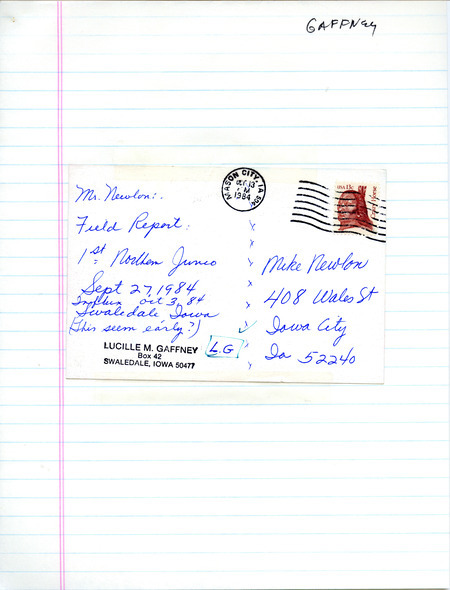 GAFFNey
Mr. Newlon:
Field Report:
1st Northern Junco
Sept 27, 1984
Influx Oct 3, 84
Swaledale Iowa
(this seem early?)
LUCILLE M. GAFFNEY
Box 42
SWALEDALE, IOWA 50477
L.G
MASON CITY, IA
13
PM
1984
USA 13c
Crazy Horse
Mike Newlon
408 Wales St
Iowa City
Ia 52240